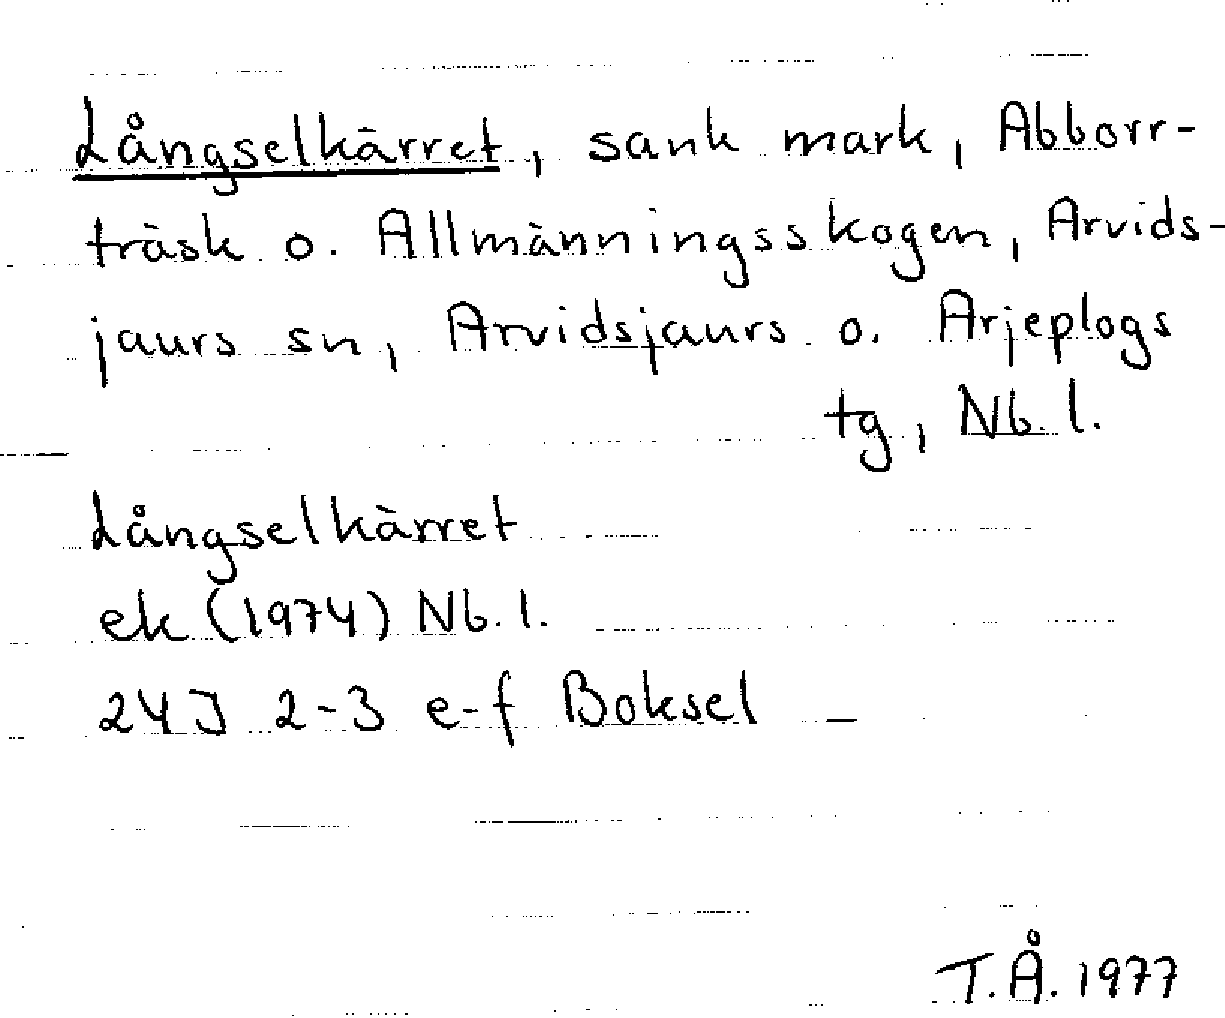 Långselkärret, sank mark, Abborr-
träsk o. Allmänningsskogen, Arvids-
jaurs sn, Arvidsjaurs o. Arjeplogs
tg, Nb. l.
Långselkärret
ek (1974) Nb. l.
24J 2-3 e-f Boksel
T.Å. 1977